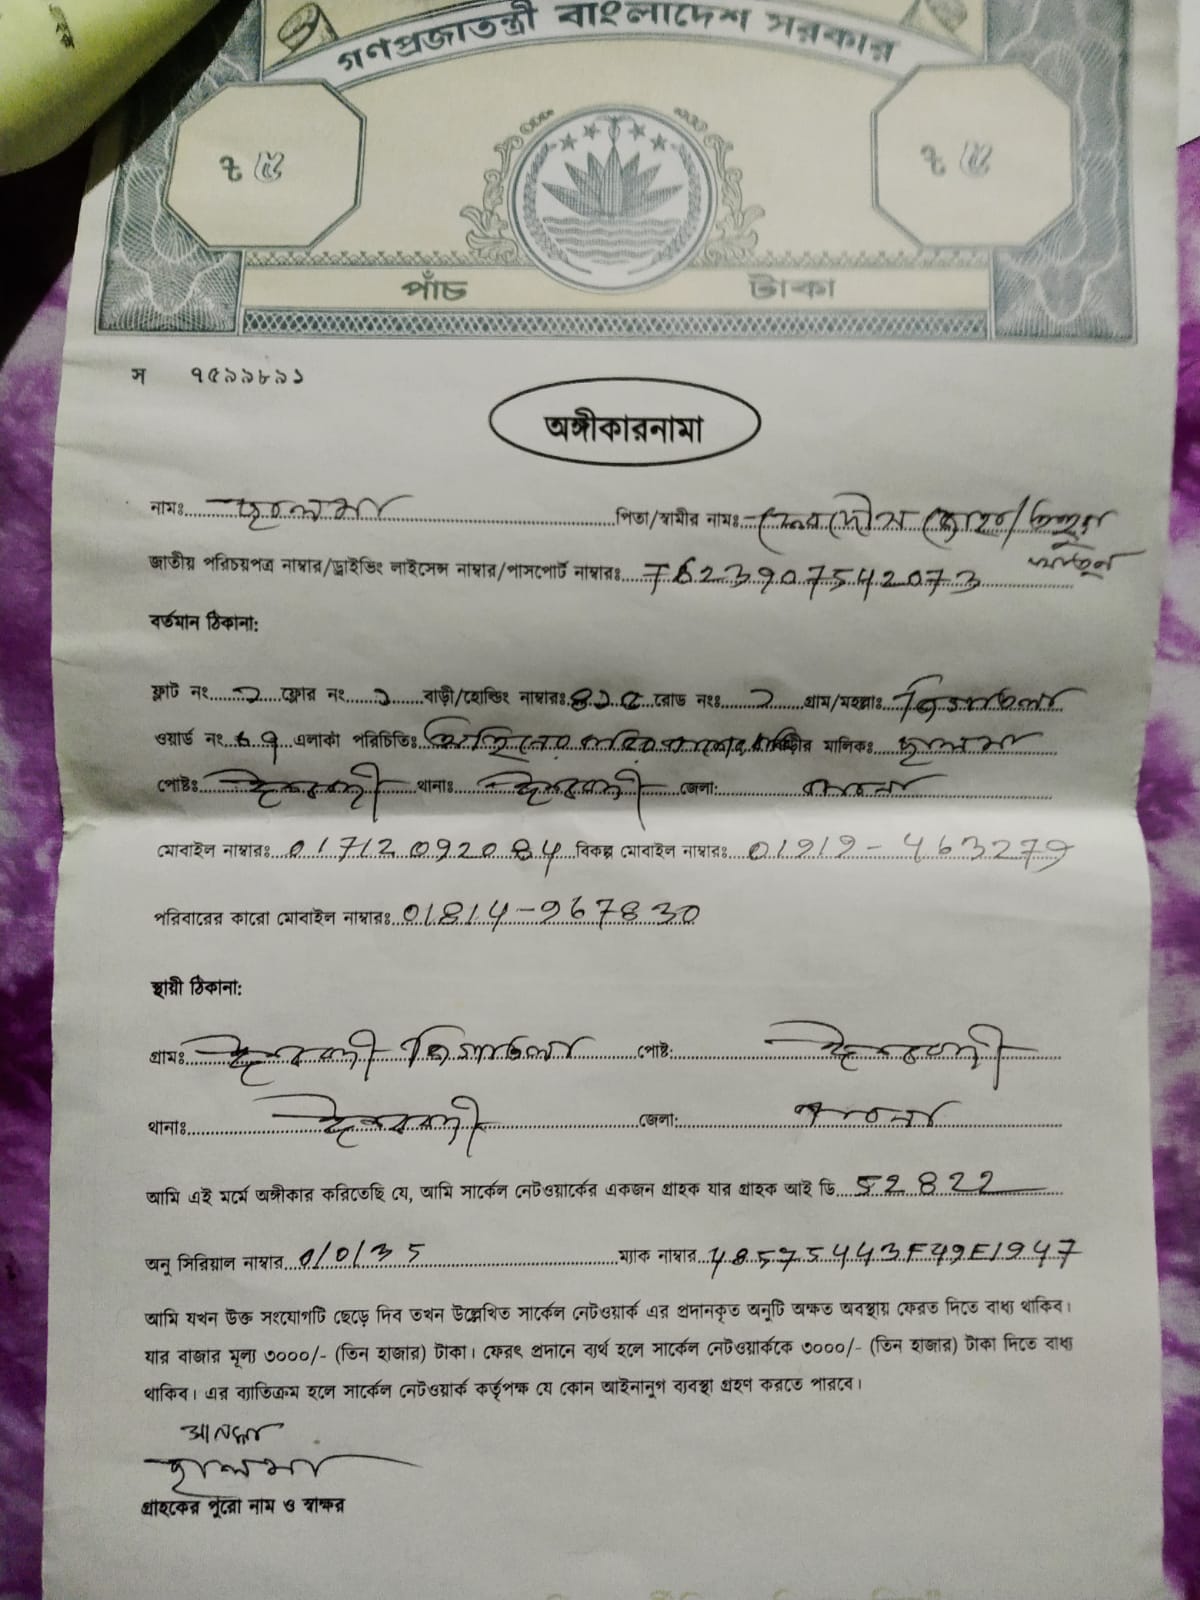 গণপ্রজাতন্ত্রী বাংলাদেশ সরকার
৳ ৫ ৳ ৫
পাঁচ টাকা
স ৭৫৯৯৮৯১
অঙ্গীকারনামা
নামঃ পিতা/স্বামীর নামঃ
জাতীয় পরিচয়পত্র নাম্বার/ড্রাইভিং লাইসেন্স নাম্বার/পাসপোর্ট নাম্বারঃ 7623907542073
বর্তমান ঠিকানা:
ফ্লাট নং ফ্লোর নং বাড়ী/হোল্ডিং নাম্বারঃ রোড নংঃ গ্রাম/মহল্লাঃ
ওয়ার্ড নং এলাকা পরিচিতিঃ মালিকঃ
পোষ্টঃ ঈশ্বরদী থানাঃ ঈশ্বরদী জেলা: পাবনা
মোবাইল নাম্বারঃ 01712092084 বিকল্প মোবাইল নাম্বারঃ 01919-463279
পরিবারের কারো মোবাইল নাম্বারঃ 01814-967830
স্থায়ী ঠিকানা:
গ্রামঃ ঈশ্বরদী পোষ্ট: ঈশ্বরদী
থানাঃ ঈশ্বরদী জেলা: পাবনা
আমি এই মর্মে অঙ্গীকার করিতেছি যে, আমি সার্কেল নেটওয়ার্কের একজন গ্রাহক যার গ্রাহক আই ডি 52822
অনু সিরিয়াল নাম্বার 0/0/35 ম্যাক নাম্বার 48575443F49E1947
আমি যখন উক্ত সংযোগটি ছেড়ে দিব তখন উল্লেখিত সার্কেল নেটওয়ার্ক এর প্রদানকৃত অনুটি অক্ষত অবস্থায় ফেরত দিতে বাধ্য থাকিব।
যার বাজার মূল্য ৩০০০/- (তিন হাজার) টাকা। ফেরৎ প্রদানে ব্যর্থ হলে সার্কেল নেটওয়ার্ককে ৩০০০/- (তিন হাজার) টাকা দিতে বাধ্য
থাকিব। এর ব্যতিক্রম হলে সার্কেল নেটওয়ার্ক কর্তৃপক্ষ যে কোন আইনানুগ ব্যবস্থা গ্রহণ করতে পারবে।
গ্রাহকের পুরো নাম ও স্বাক্ষর